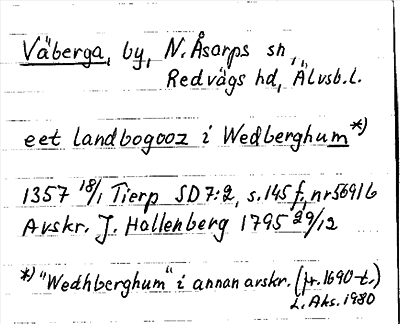 Väberga, by, N. Åsarps sn,
Redvägs hd, Älvsb.l.
eet landbogooz i Wedberghum *)
1357 18/1 Tierp SD 7:2, s. 145 f, nr 5691 b
Avskr. J. Hallenberg 1795 29/12
*) "Wedhberghum" i annan avskr. (fr. 1690-t.)
L. Aks. 1980